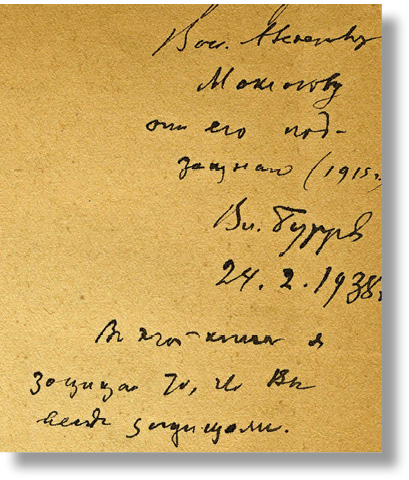 Вас. Алексеевичу
Маклакову
от его под-
защитного (1915 г.)
Вл. Бурцев
24. 2. 1938 г.
В этой книге я
защищаю то, что Вы
всегда защищали.